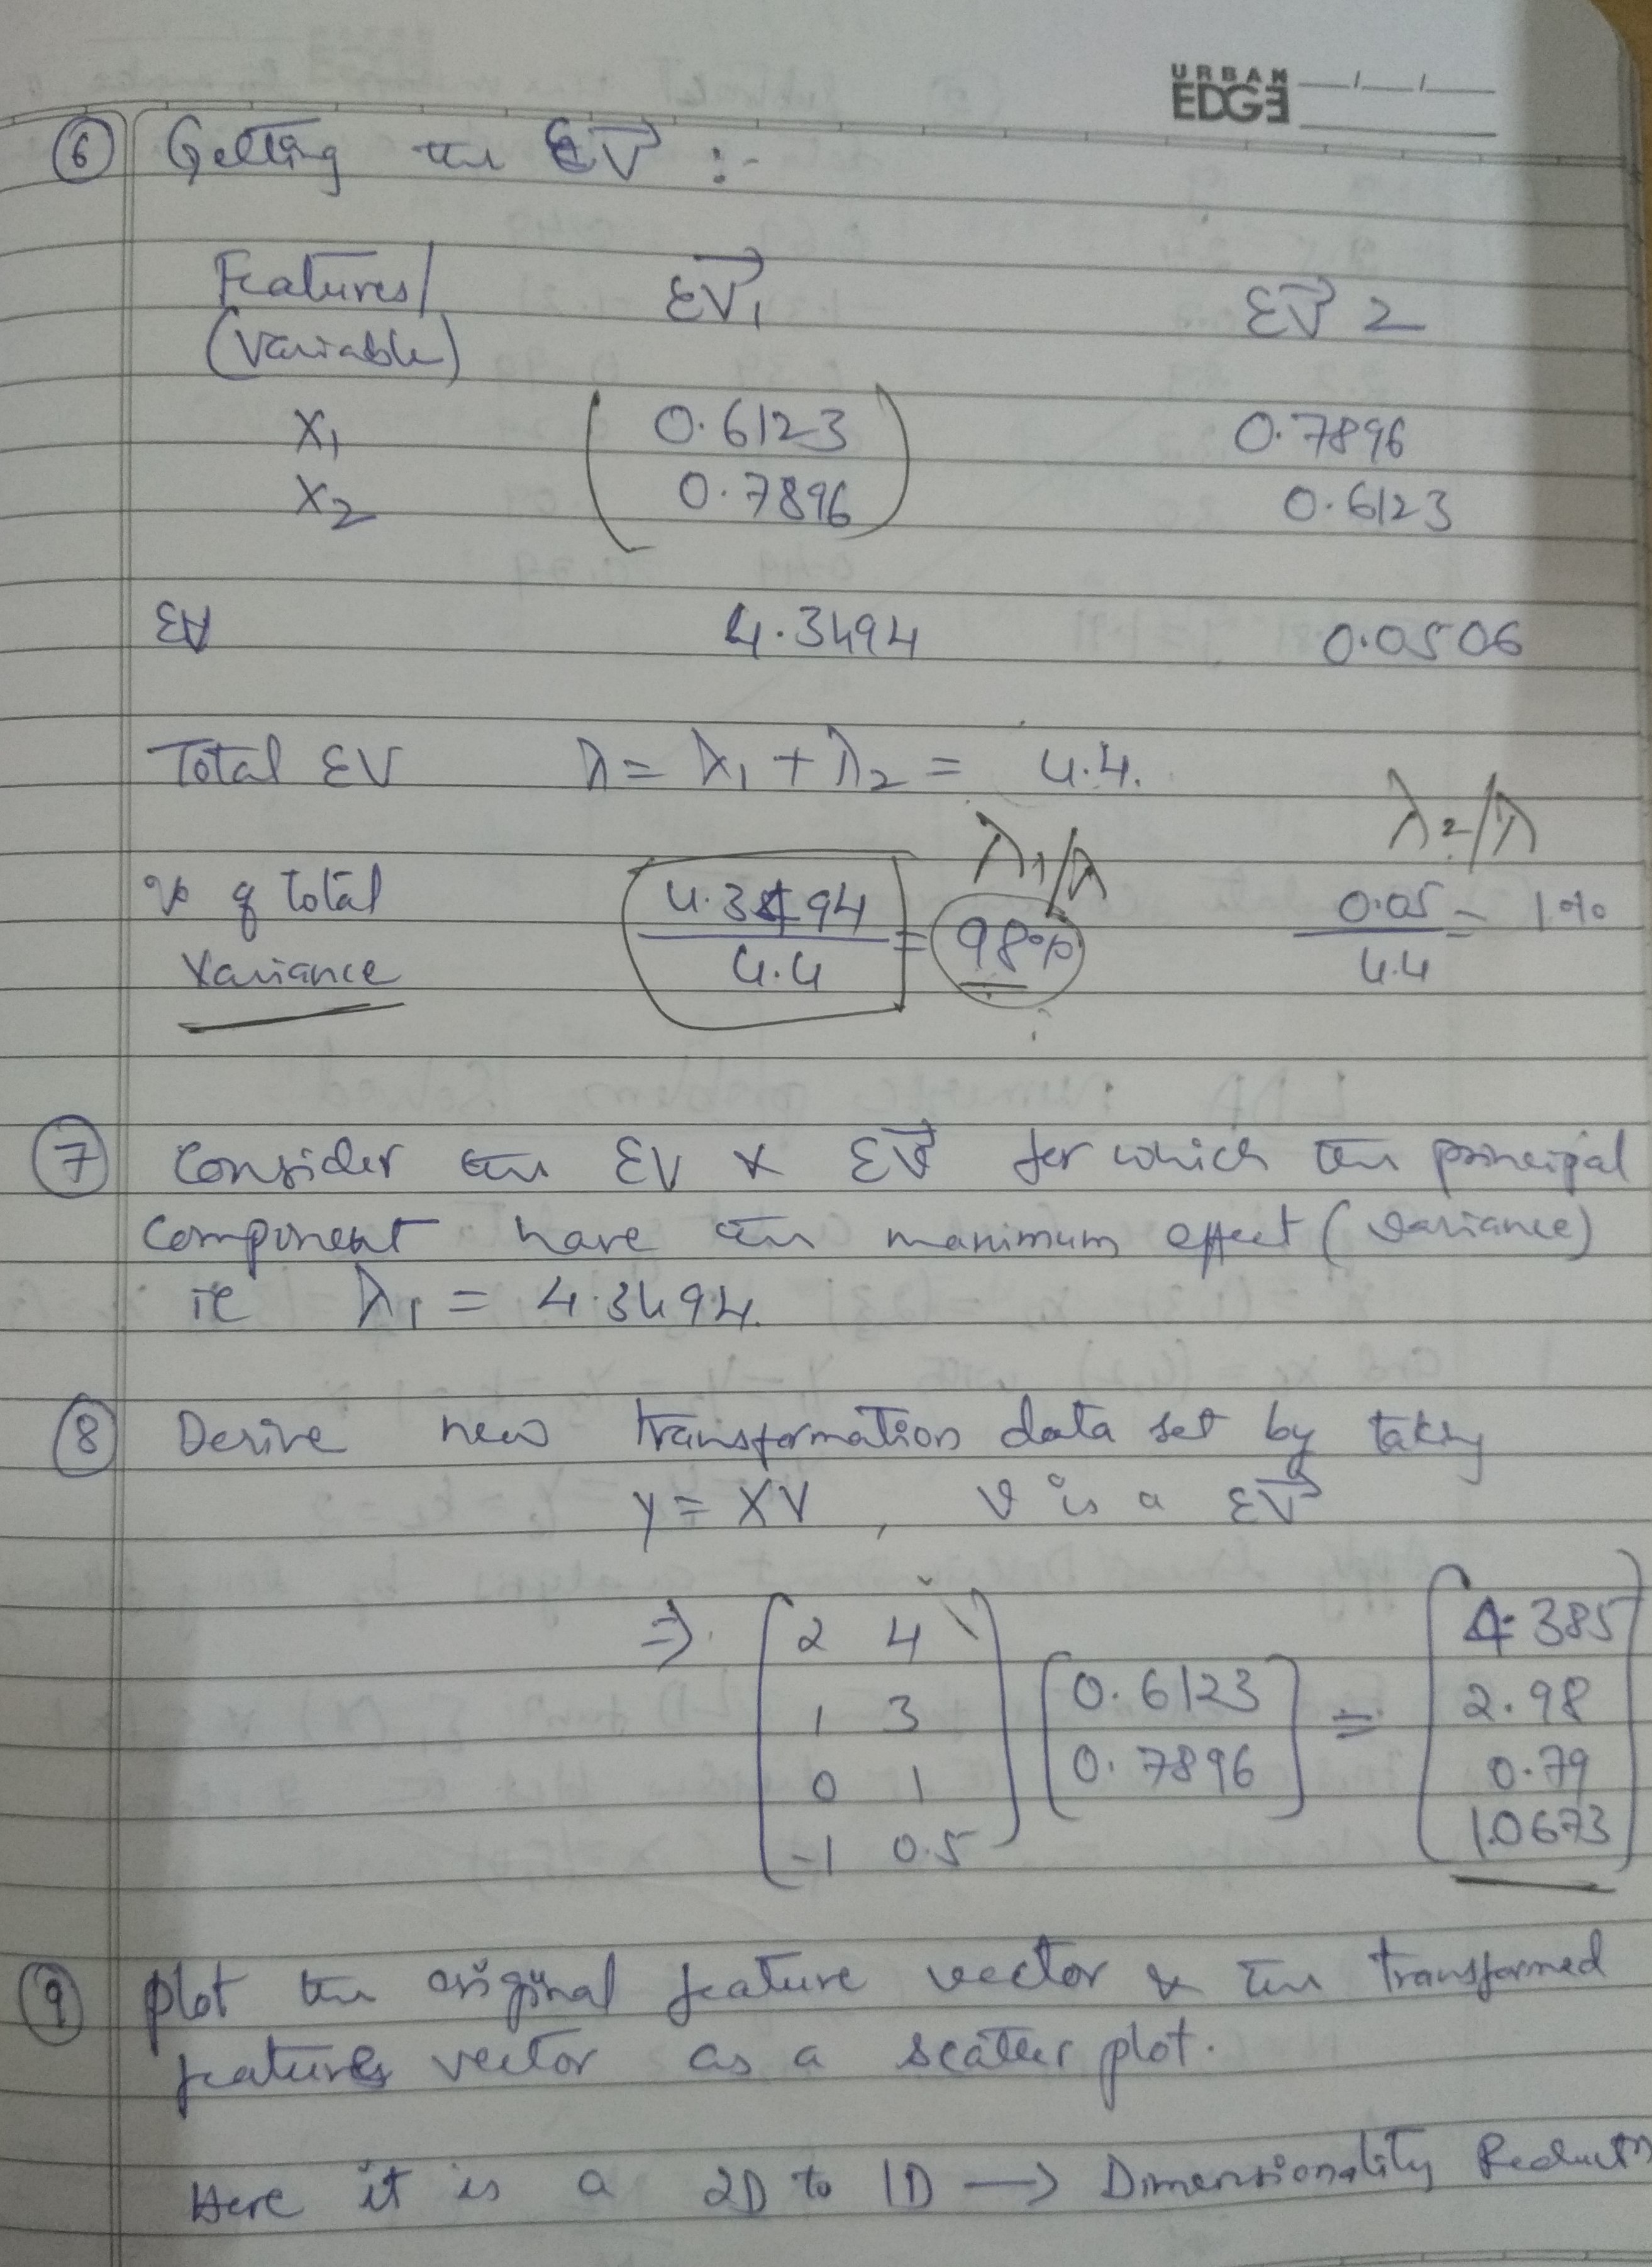 URBAN
EDGE
6 Getting the EV :-
Features/ EV1 EV 2
(Variable)
X1 0.6123 0.7896
X2 0.7896 0.6123
EV 4.3494 0.0506
Total EV λ = λ1 + λ2 = 4.4.
λ1/λ λ2/λ
% of total 4.3494/4.4 = 98% 0.05/4.4 = 1%
Variance
7 Consider the EV & EV for which the principal
component have the maximum effect (variance)
ie λ1 = 4.3494.
8 Derive new transformation data set by taking
y = XV , v is a EV
⇒ [2 4 [4.385
1 3 [0.6123 = 2.98
0 1 0.7896] 0.79
-1 0.5] 1.0673]
9 plot the original feature vector & the transformed
features vector as a scatter plot.
Here it is a 2D to 1D → Dimensionality